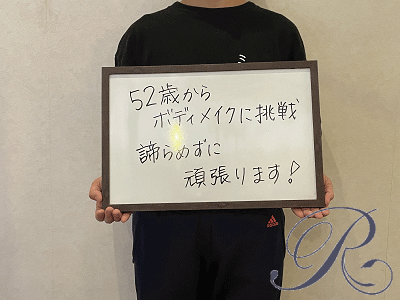 52歳から
ボディメイクに挑戦
諦らめずに
頑張ります!
R